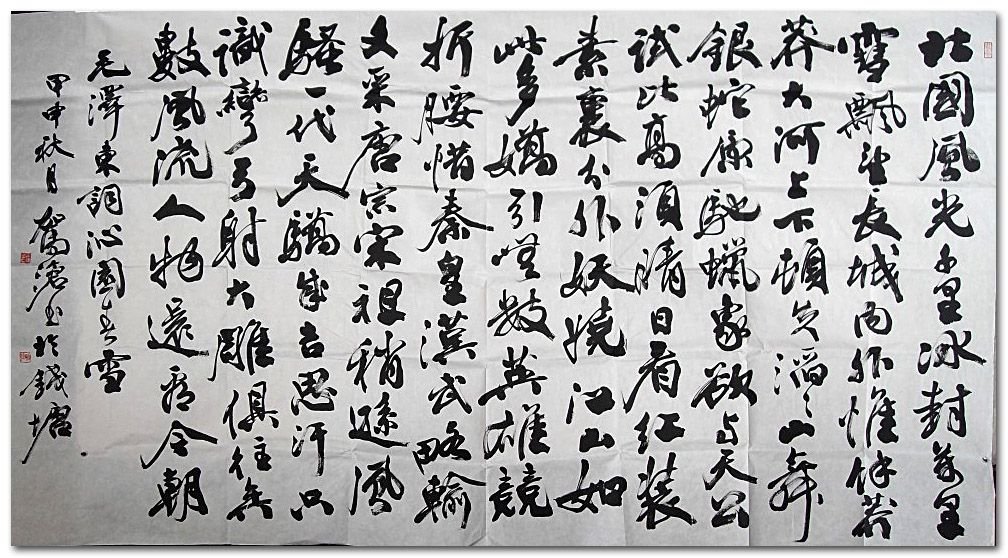 北國風光千里冰封萬里
雪飄望長城内外惟餘莽
莽大河上下頓失滔々山舞
銀蛇原馳蠟象欲与天公
試比高須晴日看紅裝
素裹分外妖嬈江山如
此多嬌引無數英雄競
折腰惜秦皇漢武略輸
文采唐宗宋祖稍遜風
騷一代天驕成吉思汗只
識彎弓射大雕俱往矣
數風流人物還看今朝
毛澤東詞沁園春雪
甲申秋月 駕滄书於錢塘